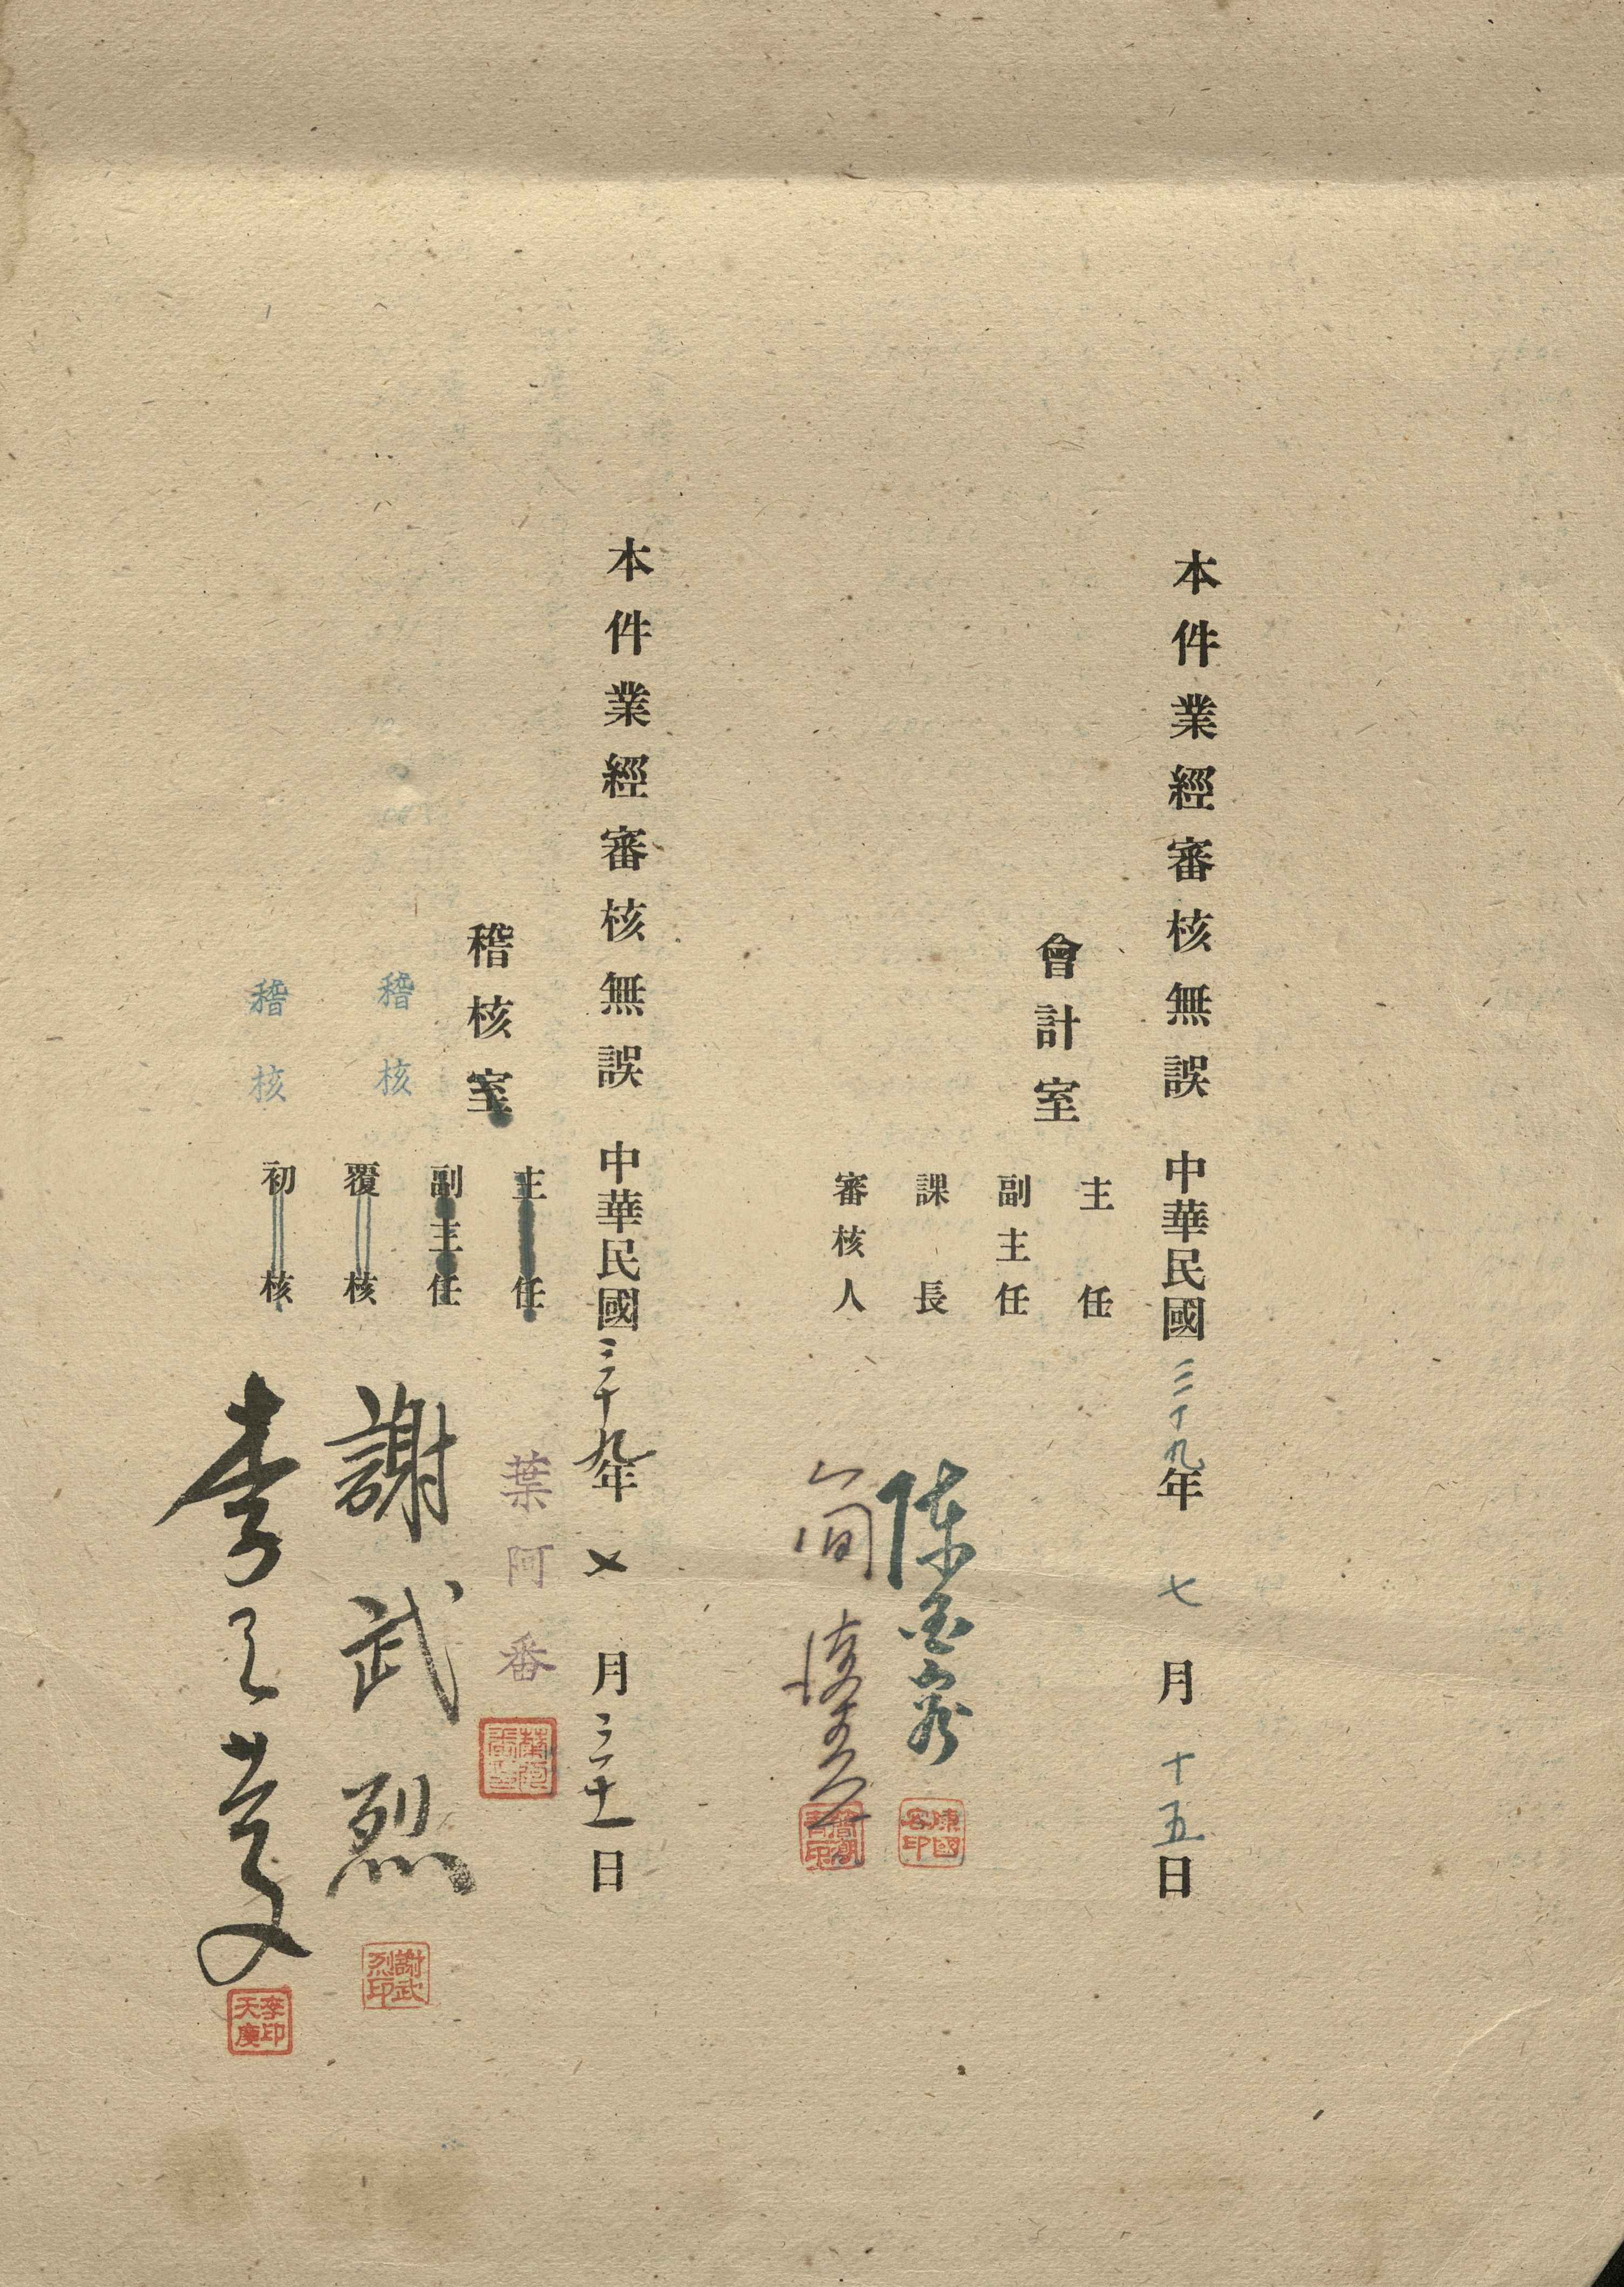 本件業經審核無誤　中華民國三十九年七月十五日
會計室
主任
副主任
課長　陳國容
陳國容印
審核人　簡
本件業經審核無誤　中華民國三十九年七月二十一日
稽核室
主任　葉阿番
副主任
稽核
覆核　謝武烈
謝武烈印
稽核
初核　李天慶
李印天慶